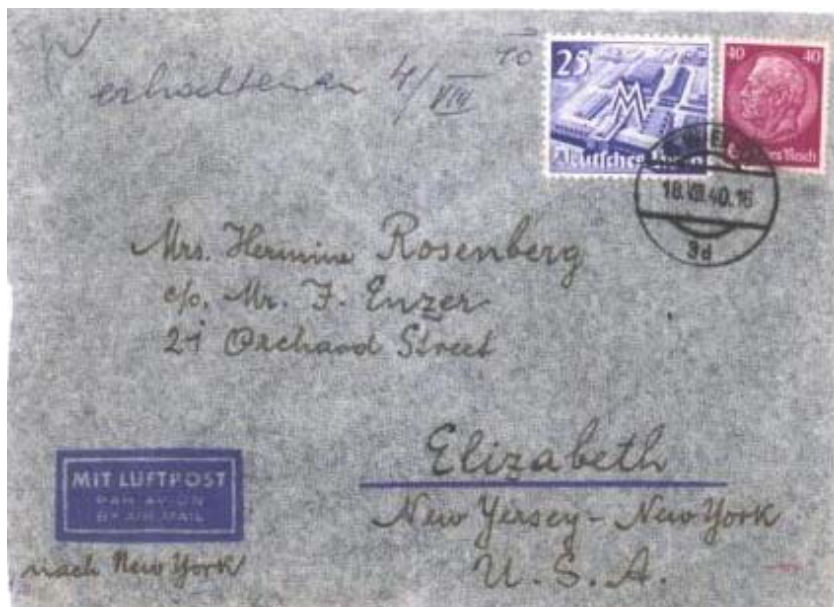 erhalten am 4/VIII
25
Deutsches Reich
40 40
Deutsches Reich
18.VII.40.16
9d
Mrs. Hermine Rosenberg
c/o. Mr. F. Enzer
21 Orchard Street
Elizabeth
New Yersey - New York
U. S. A.
MIT LUFTPOST
PAR AVION
BY AIR MAIL
nach New York